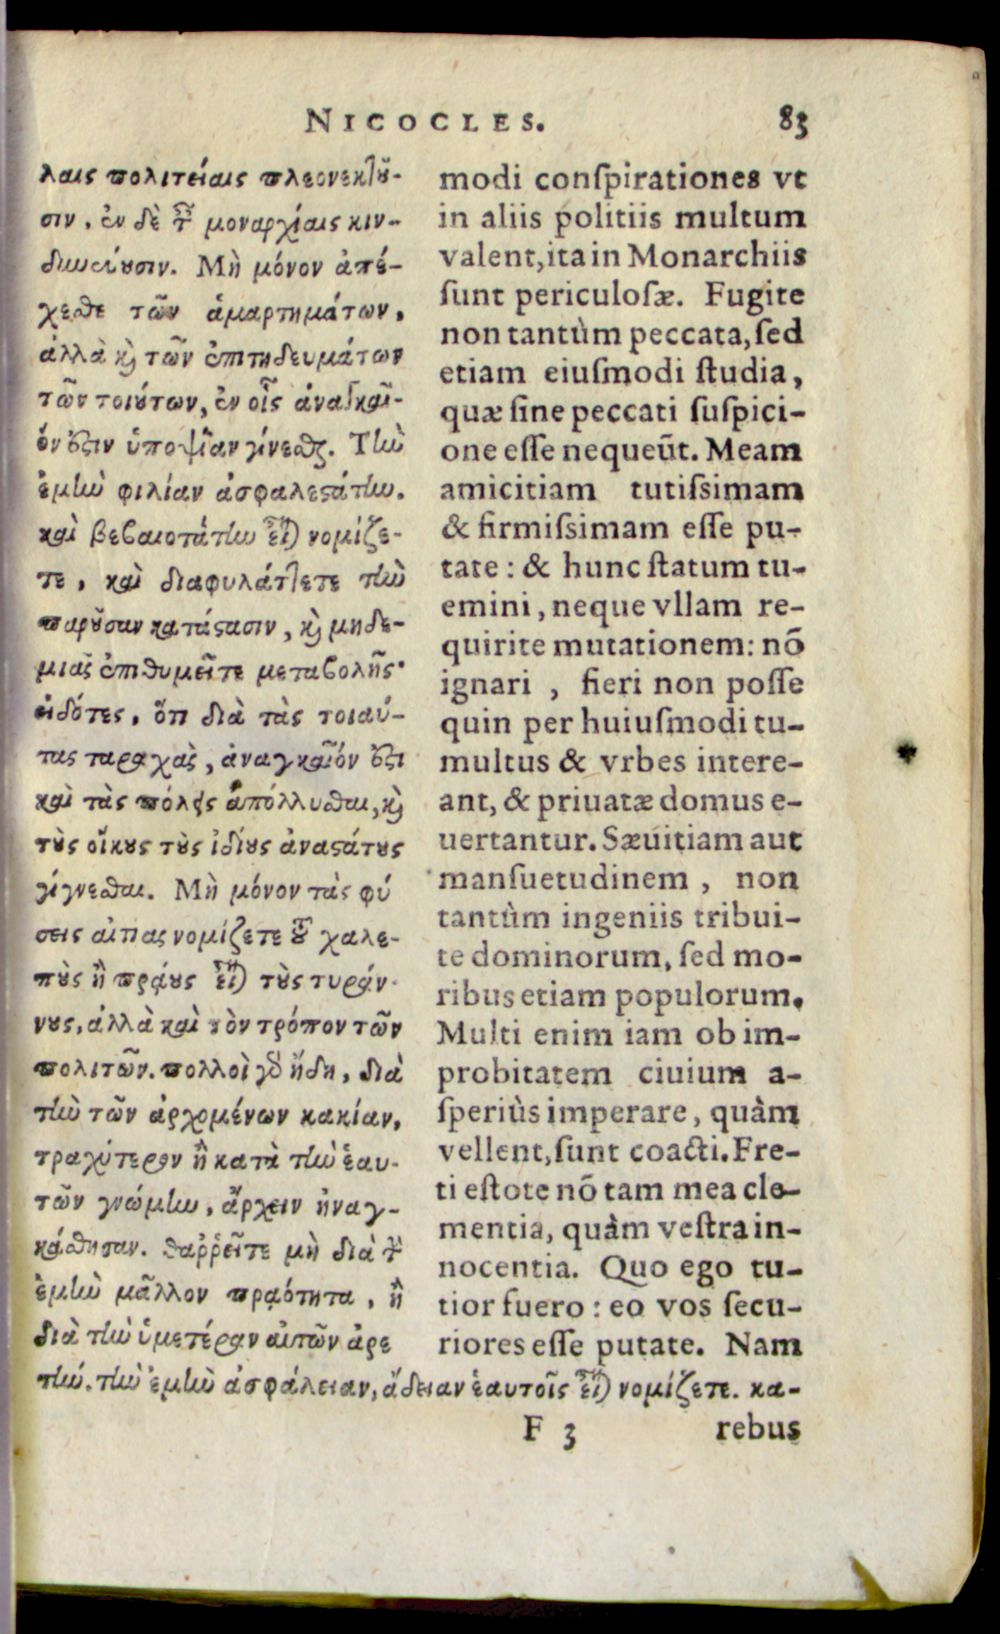 NICOCLES. 83
λαις πολιτείαις πλεονεκτοῦ-
σιν, ἐν δὲ τ μοναρχίαις κιν-
δυνεύουσιν. Μὴ μόνον ἀπέ-
χεσθε τῶν ἁμαρτημάτων,
ἀλλὰ καὶ τῶν ἐπιτηδευμάτων
τῶν τοιούτων, ἐν οἷς ἀναγκαῖ-
όν ἐστιν ὑποψίαν γίνεσθαι. Τὴν
ἐμὴν φιλίαν ἀσφαλεστάτην.
καὶ βεβαιοτάτην εἶναι νομίζε-
τε, καὶ διαφυλάττετε τὴν
παροῦσαν κατάστασιν, καὶ μηδε-
μιᾶς ἐπιθυμεῖτε μεταβολῆς·
εἰδότες, ὅτι διὰ τὰς τοιαύ-
τας ταραχὰς, ἀναγκαῖόν ἐστι
καὶ τὰς πόλεις ἀπόλλυσθαι, καὶ
τοὺς οἴκους τοὺς ἰδίους ἀναστάτους
γίγνεσθαι. Μὴ μόνον τὰς φύ
σεις αἰτίας νομίζετε τοῦ χαλε-
ποὺς ἢ πράους εἶναι τοὺς τυράν-
νους, ἀλλὰ καὶ τὸν τρόπον τῶν
πολιτῶν. πολλοὶ γὰρ ἤδη, διὰ
τὴν τῶν ἀρχομένων κακίαν,
τραχύτερον ἢ κατὰ τὴν ἑαυ-
τῶν γνώμην, ἄρχειν ἠναγ-
κάσθησαν. θαῤῥεῖτε μὴ διὰ τὴν
ἐμὴν μᾶλλον πραότητα, ἢ
διὰ τὴν ὑμετέραν αὐτῶν ἀρε
τήν. τὴν ἐμὴν ἀσφάλειαν, ἄδειαν ἑαυτοῖς εἶναι νομίζετε. κα-
modi conſpirationes vt
in aliis politiis multum
valent, ita in Monarchiis
ſunt periculoſæ. Fugite
non tantùm peccata, ſed
etiam eiuſmodi ſtudia,
quæ ſine peccati ſuſpici-
one eſſe nequeūt. Meam
amicitiam tutiſsimam
& firmiſsimam eſſe pu-
tate: & hunc ſtatum tu-
emini, neque vllam re-
quirite mutationem: nō
ignari, fieri non poſſe
quin per huiuſmodi tu-
multus & vrbes intere-
ant, & priuatæ domus e-
uertantur. Sæuitiam aut
manſuetudinem, non
tantùm ingeniis tribui-
te dominorum, ſed mo-
ribus etiam populorum.
Multi enim iam ob im-
probitatem ciuium a-
ſperiùs imperare, quàm
vellent, ſunt coacti. Fre-
ti eſtote nō tam mea cle-
mentia, quàm veſtra in-
nocentia. Quo ego tu-
tior fuero: eo vos ſecu-
riores eſſe putate. Nam
F 3 rebus